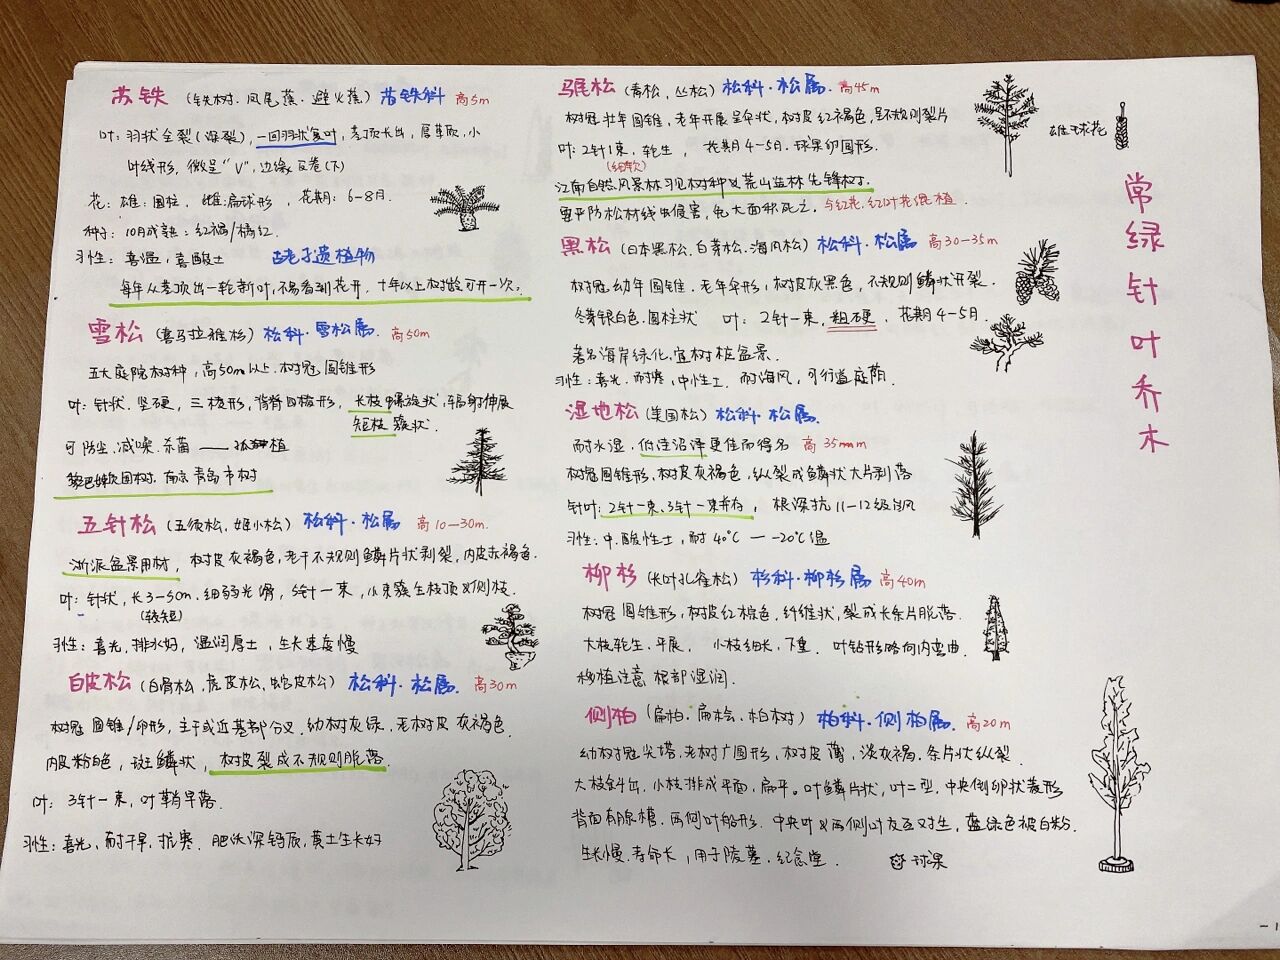 苏铁 (铁树. 凤尾蕉. 避火蕉) 苏铁科 高5m
叶: 羽状全裂(深裂), 一回羽状复叶, 茎顶长出, 厚革质, 小
叶线形, 微呈"V", 边缘反卷(下)
花: 雄: 圆柱, 雌: 扁球形, 花期: 6-8月.
种子: 10月成熟: 红褐/橘红.
习性: 喜湿, 喜酸土 古老孑遗植物
每年从茎顶出一轮新叶, 不易看到花开, 十年以上树龄可开一次.
雪松 (喜马拉雅杉) 松科·雪松属 高50m
五大庭院树种, 高50m以上. 树冠圆锥形
叶: 针状. 坚硬, 三棱形, 背脊四棱形, 长枝螺旋状, 辐射伸展
短枝簇状.
可防尘. 减噪. 杀菌 —— 孤植
黎巴嫩国树. 南京青岛市树
五针松 (五须松, 姬小松) 松科·松属 高10-30m.
浙派盆景用材, 树皮灰褐色, 老干不规则鳞片状剥裂, 内皮赤褐色.
叶: 针状, 长3-5cm. 细弱光滑, 5针一束, 小束簇生枝顶及侧枝.
(较短)
习性: 喜光, 排水好, 湿润厚土, 生长速度慢
白皮松 (白骨松, 虎皮松, 蛇皮松) 松科·松属. 高30m
树冠 圆锥/卵形, 主干或近基部分叉. 幼树灰绿, 老树皮灰褐色.
内皮粉白色, 斑鳞状, 树皮裂成不规则脱落.
叶: 3针一束, 叶鞘早落.
习性: 喜光, 耐干旱, 抗寒. 肥沃深钙质, 黄土生长好
马尾松 (青松, 丛松) 松科·松属. 高45m
树冠壮年圆锥, 老年开展呈伞状, 树皮红褐色, 呈不规则裂片
叶: 2针1束, 轮生, 花期4-5月. 球果卵圆形.
(细软)
江南自然风景林习见树种及荒山造林先锋树.
要严防松材线虫侵害, 免大面积死亡. 与红花. 红叶花混植
雄球花
黑松 (日本黑松. 白芽松. 海风松) 松科·松属 高30-35m
树冠幼年圆锥. 老年伞形, 树皮灰黑色, 不规则鳞状开裂.
冬芽银白色. 圆柱状 叶: 2针一束, 粗硬. 花期4-5月.
著名海岸绿化, 宜树桩盆景.
习性: 喜光. 耐寒, 中性土. 耐海风, 可行道庭荫.
湿地松 (美国松) 松科·松属.
耐水湿. 低洼沼泽更佳而得名 高35m
树冠圆锥形, 树皮灰褐色, 纵裂成鳞状大片剥落
针叶: 2针一束. 3针一束并存, 根深抗11-12级台风
习性: 中. 酸性土, 耐40℃ — -20℃温
柳杉 (长叶孔雀松) 杉科·柳杉属 高40m
树冠 圆锥形, 树皮红棕色, 纤维状, 裂成长条片脱落.
大枝轮生. 平展, 小枝细长, 下垂. 叶钻形略向内弯曲.
移植注意 根部湿润.
侧柏 (扁柏. 扁桧. 柏树) 柏科·侧柏属. 高20m
幼树冠尖塔. 老树广圆形, 树皮薄, 淡灰褐. 条片状纵裂
大枝斜出, 小枝排成平面, 扁平. 叶鳞片状, 叶二型, 中央倒卵状菱形
背面有腺槽. 两侧叶船形. 中央叶及两侧叶交互对生, 蓝绿色被白粉.
生长慢. 寿命长, 用于陵墓. 纪念堂. 球果
常绿针叶乔木
-1